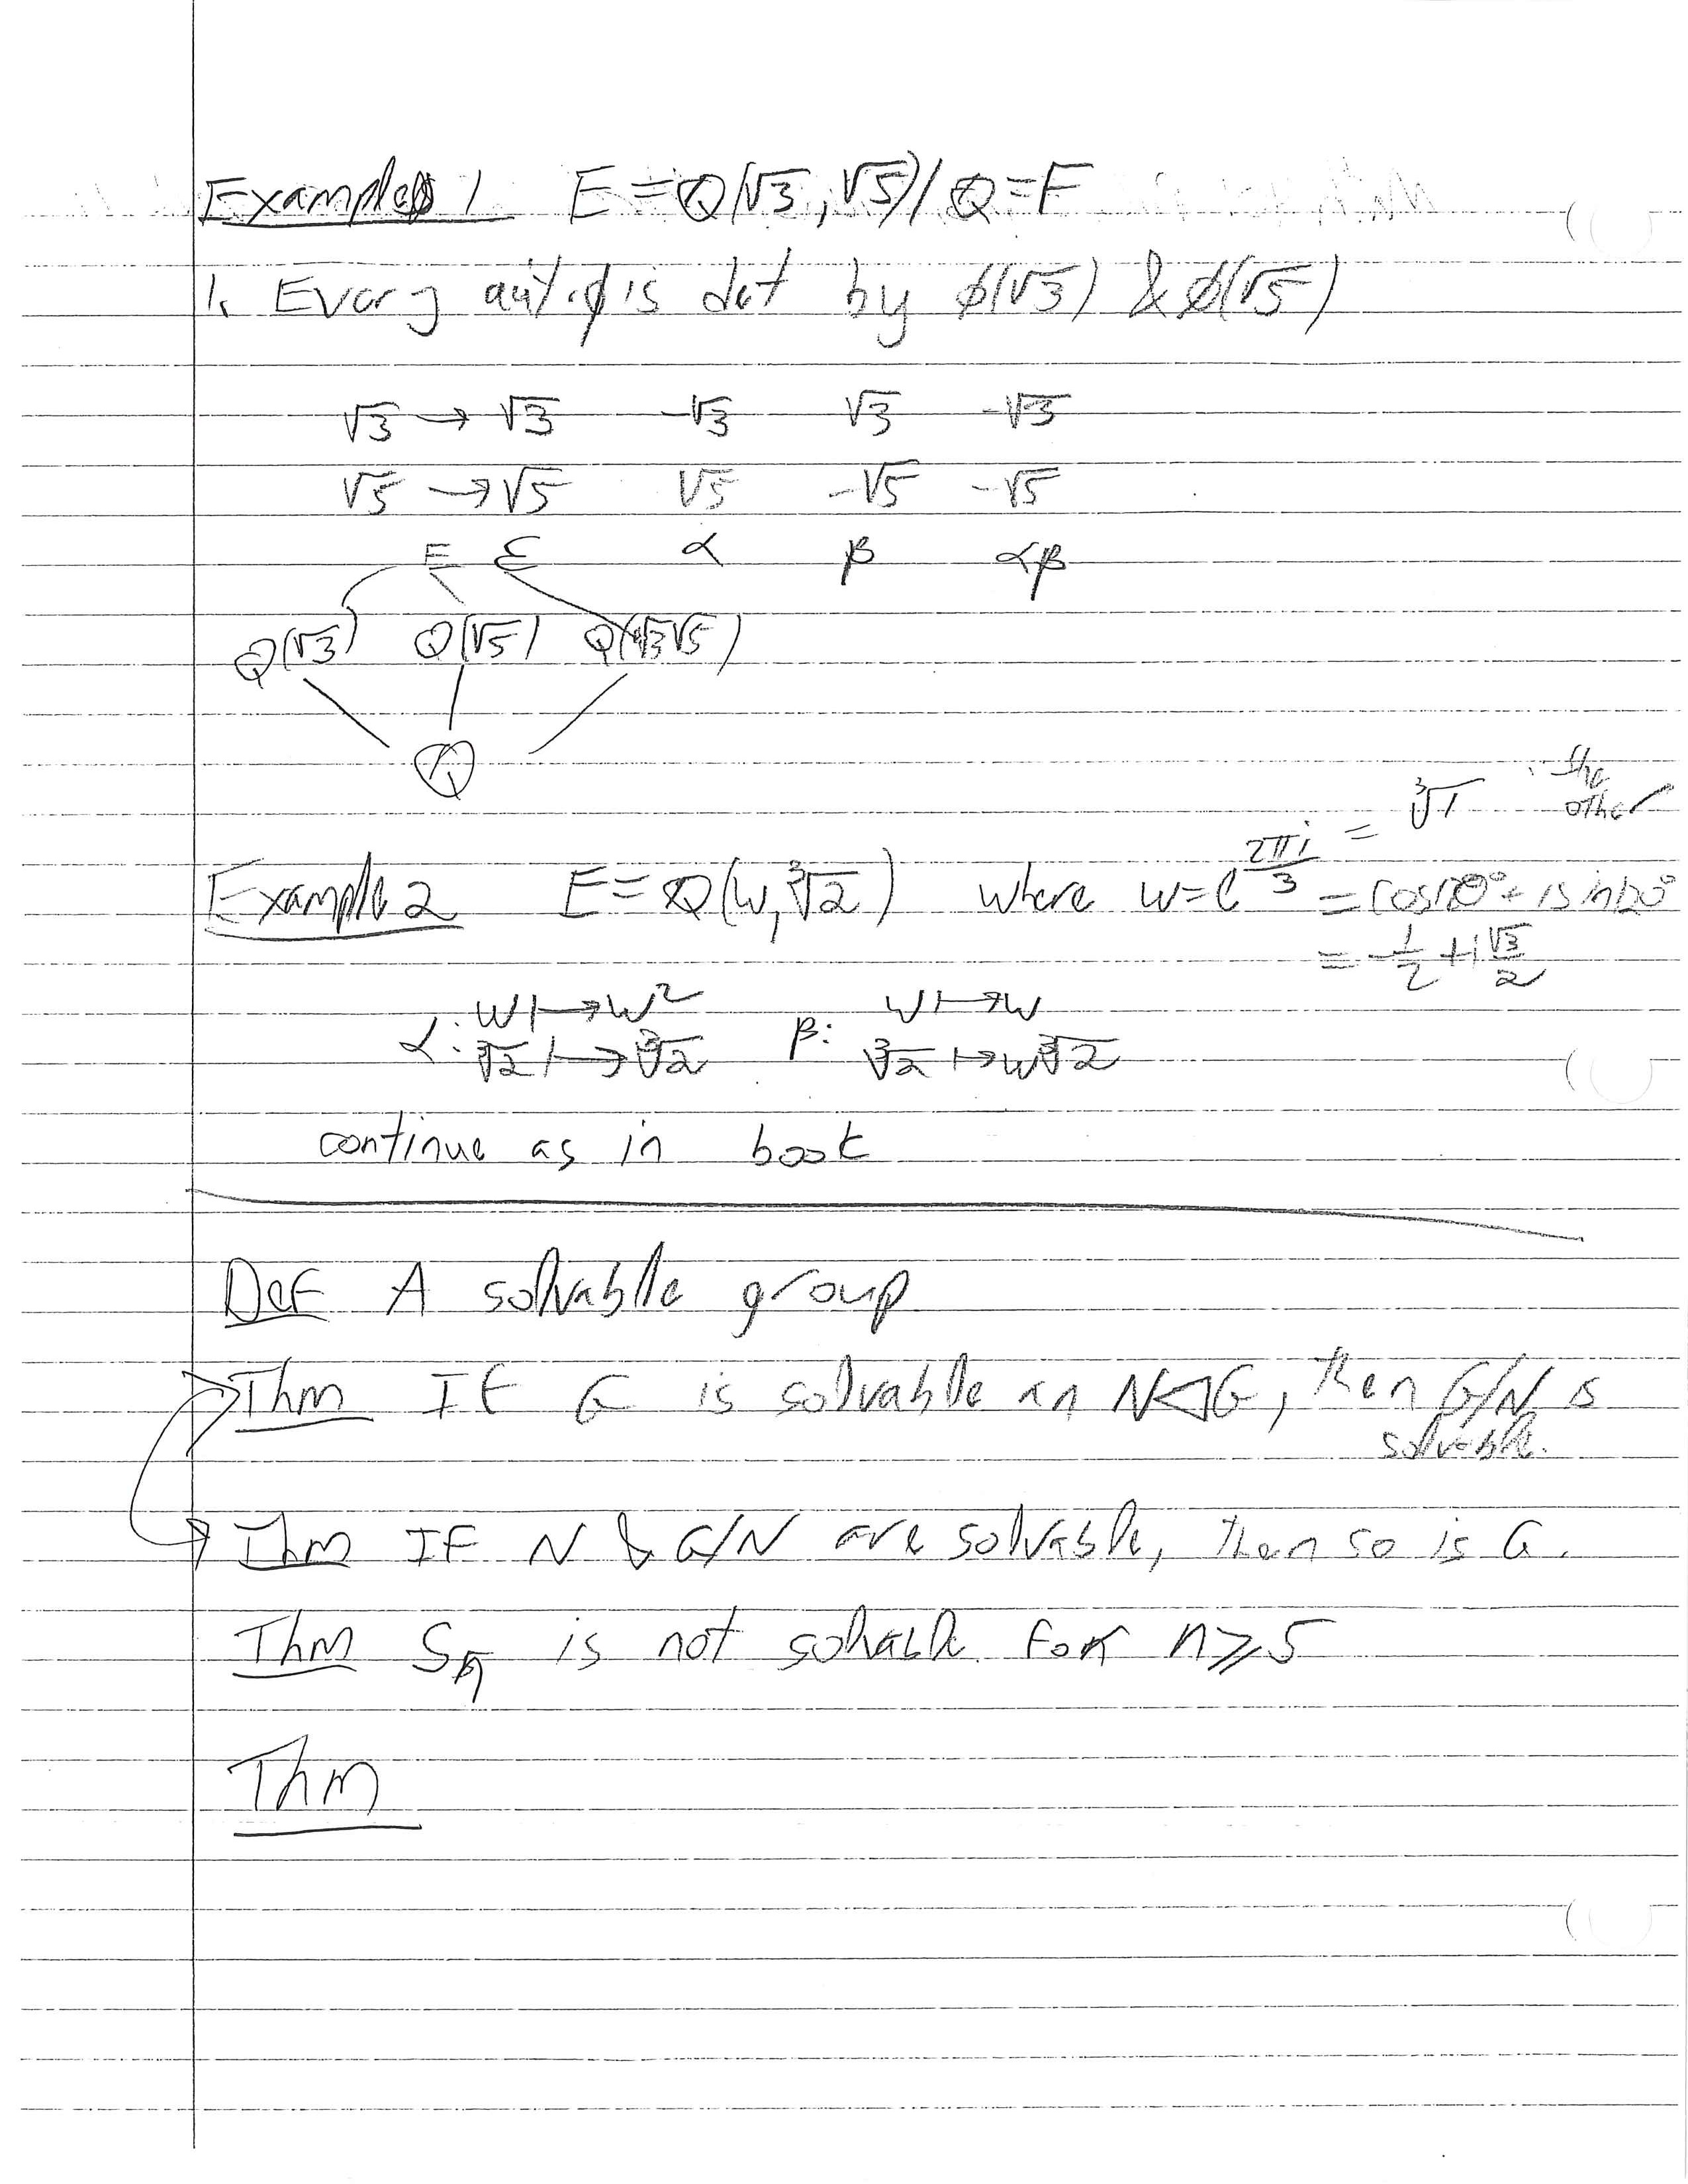 Example 1 E = Q(√3, √5) / Q = F
1. Every aut. φ is det by φ(√3) & φ(√5)
√3 → √3 -√3 √3 -√3
√5 → √5 √5 -√5 -√5
E ε α β αβ
Q(√3) Q(√5) Q(√3√5)
Q
= ∛1 the other
Example 2 E = Q(w, ∛2) where w = e^(2πi/3) = cos120° + i sin120°
= -1/2 + i √3/2
α: w ↦ w² β: w ↦ w
∛2 ↦ ∛2 ∛2 ↦ w∛2
continue as in book
Def A solvable group
Thm If G is solvable an N◁G, then G/N is
solvable.
Thm IF N & G/N are solvable, then so is G.
Thm Sn is not solvable for n ≥ 5
Thm